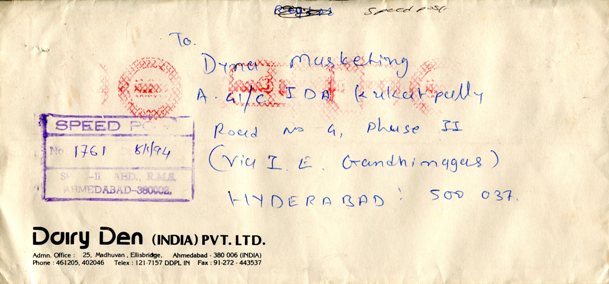 Speed post.
To.
Dyna Marketing
A. 41/c IDA Kukatpally
Road No 4, Phase II
(Via I. E. Gandhinagar)
HYDERABAD : 500 037.
SPEED
No 1761
AHMEDABAD-380002.
Dairy Den (INDIA) PVT. LTD.
Admn. Office : 25, Madhuvan, Ellisbridge, Ahmedabad - 380 006 (INDIA)
Phone : 461205, 402046 Telex : 121-7157 DDPL IN Fax : 91-272 - 443537